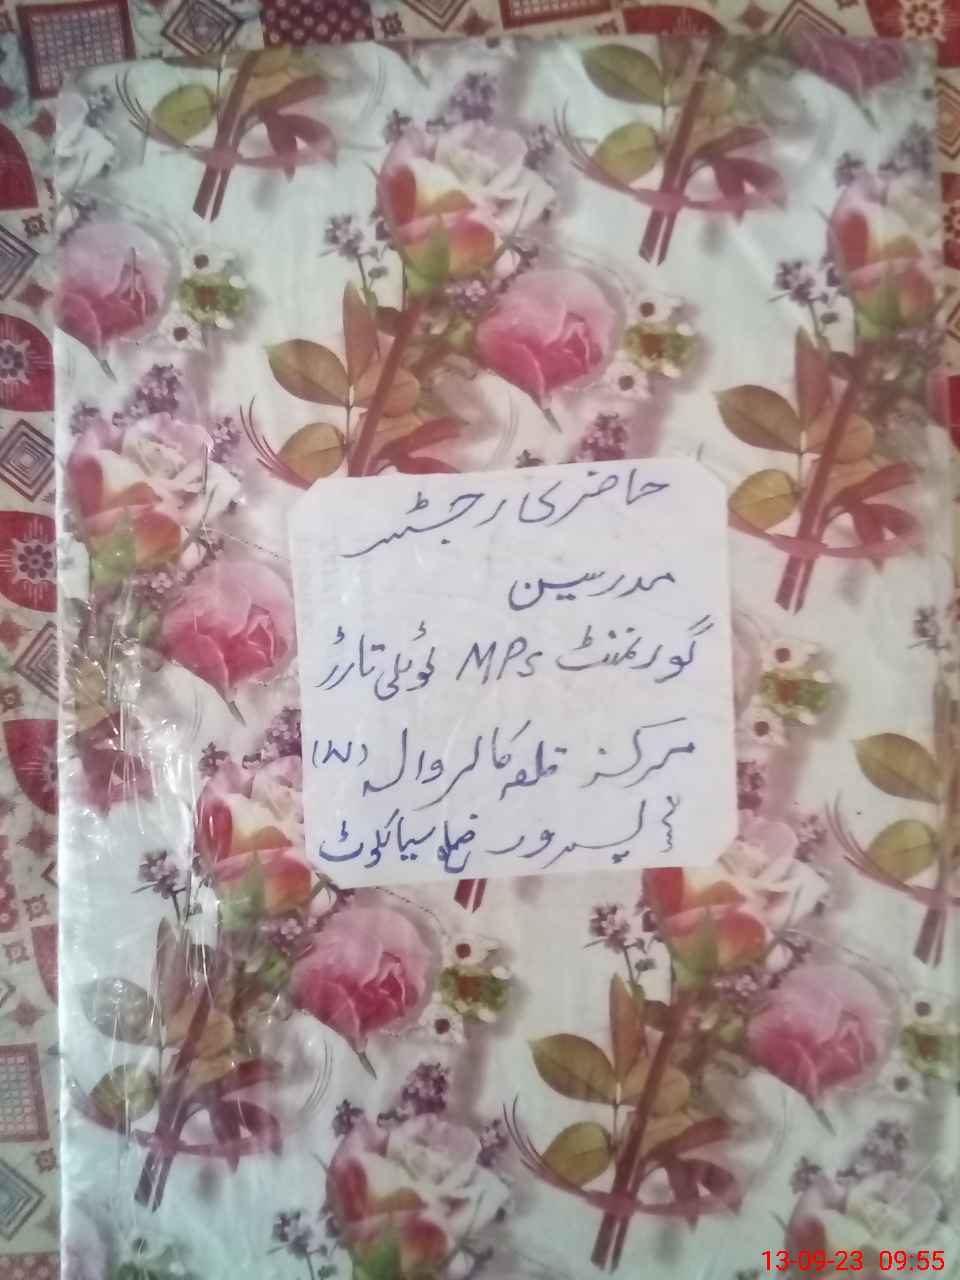 حاضری رجسٹر
مدرسین
گورنمنٹ MPS کوٹلی تارڑ
مرکز قلعہ کالروالہ (W)
پسرور ضلع سیالکوٹ
13-09-23 09:55